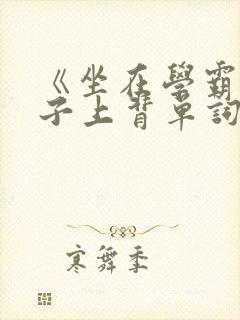 《坐在學霸
子上背單詞
寒舞季